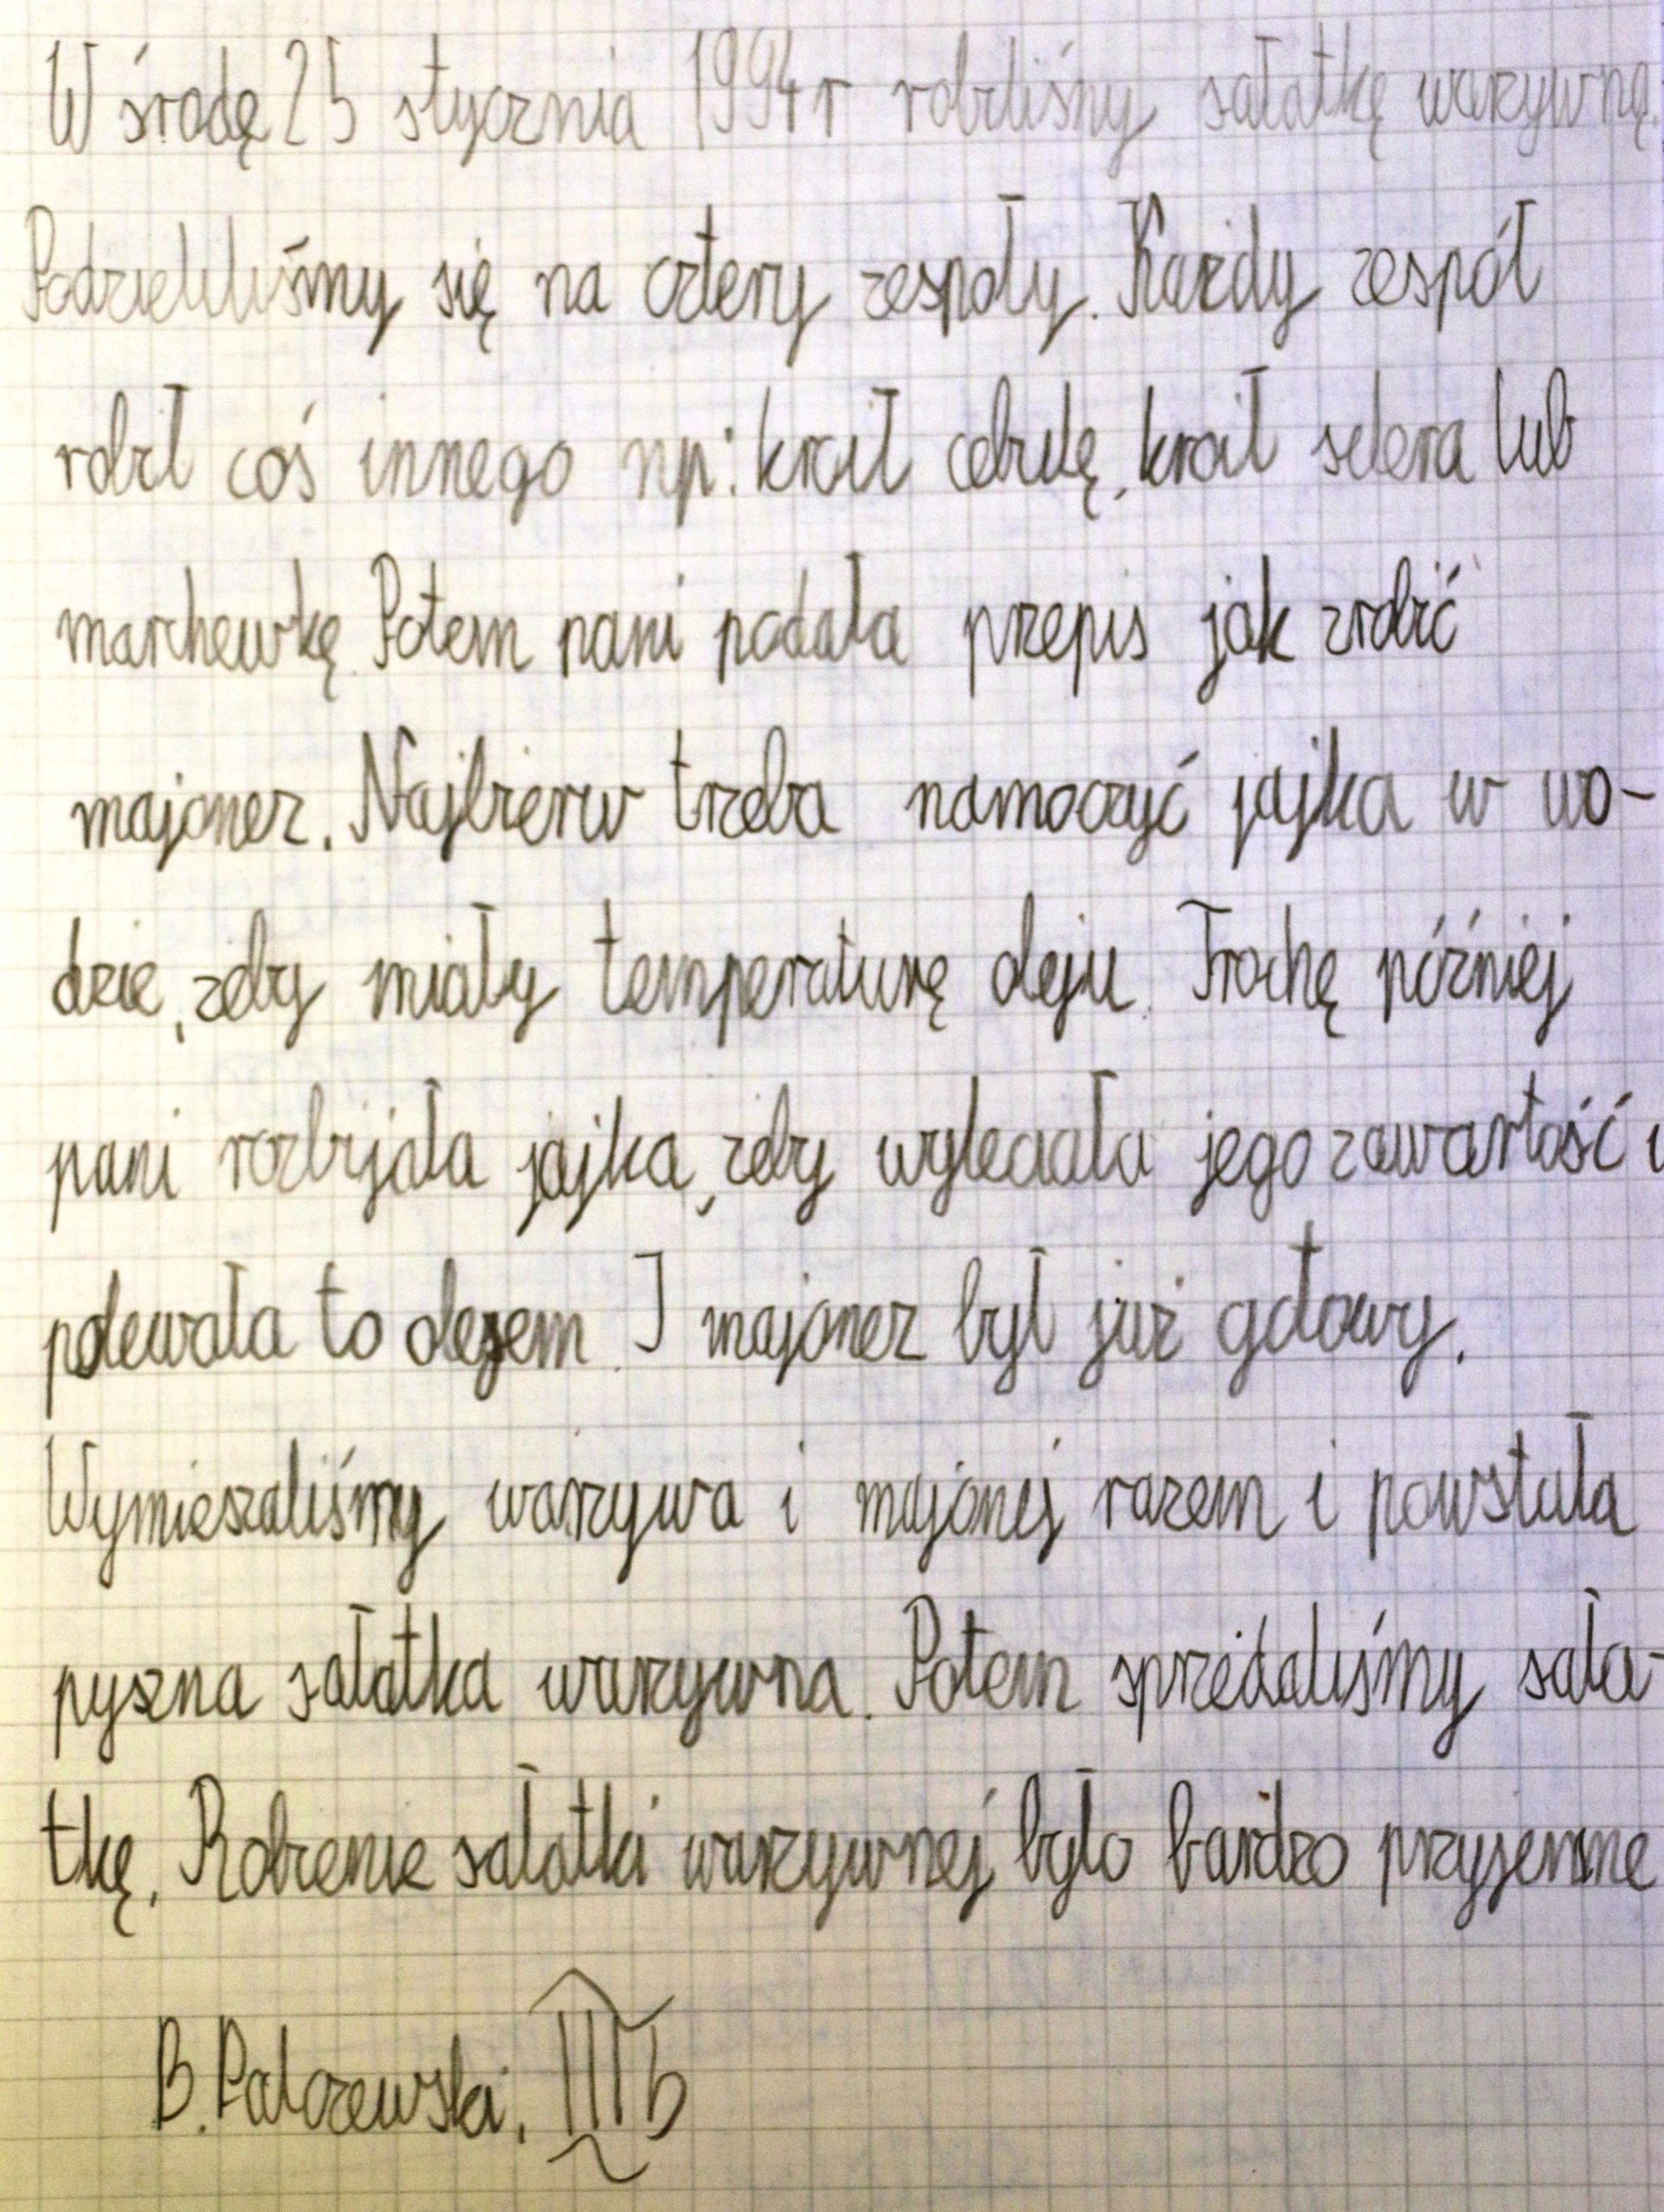 W środę 25 stycznia 1994 r robiliśmy sałatkę warzywną.
Podzieliliśmy się na cztery zespoły. Każdy zespół
robił coś innego np: kroił cebulę, kroił selera lub
marchewkę. Potem pani podała przepis jak zrobić
majonez. Najbierw trzeba namoczyć jajka w wo-
dzie, żeby miały temperaturę oleju. Trochę później
pani rozbijała jajka, żeby wyleciała jego zawartość i
polewała to olejem. I majonez był już gotowy.
Wymieszaliśmy warzywa i majonej razem i powstała
pyszna sałatka warzywna. Potem sprzedaliśmy sała-
tkę. Robienie sałatki warzywnej było bardzo przyjemne
B. Palczewski. III b